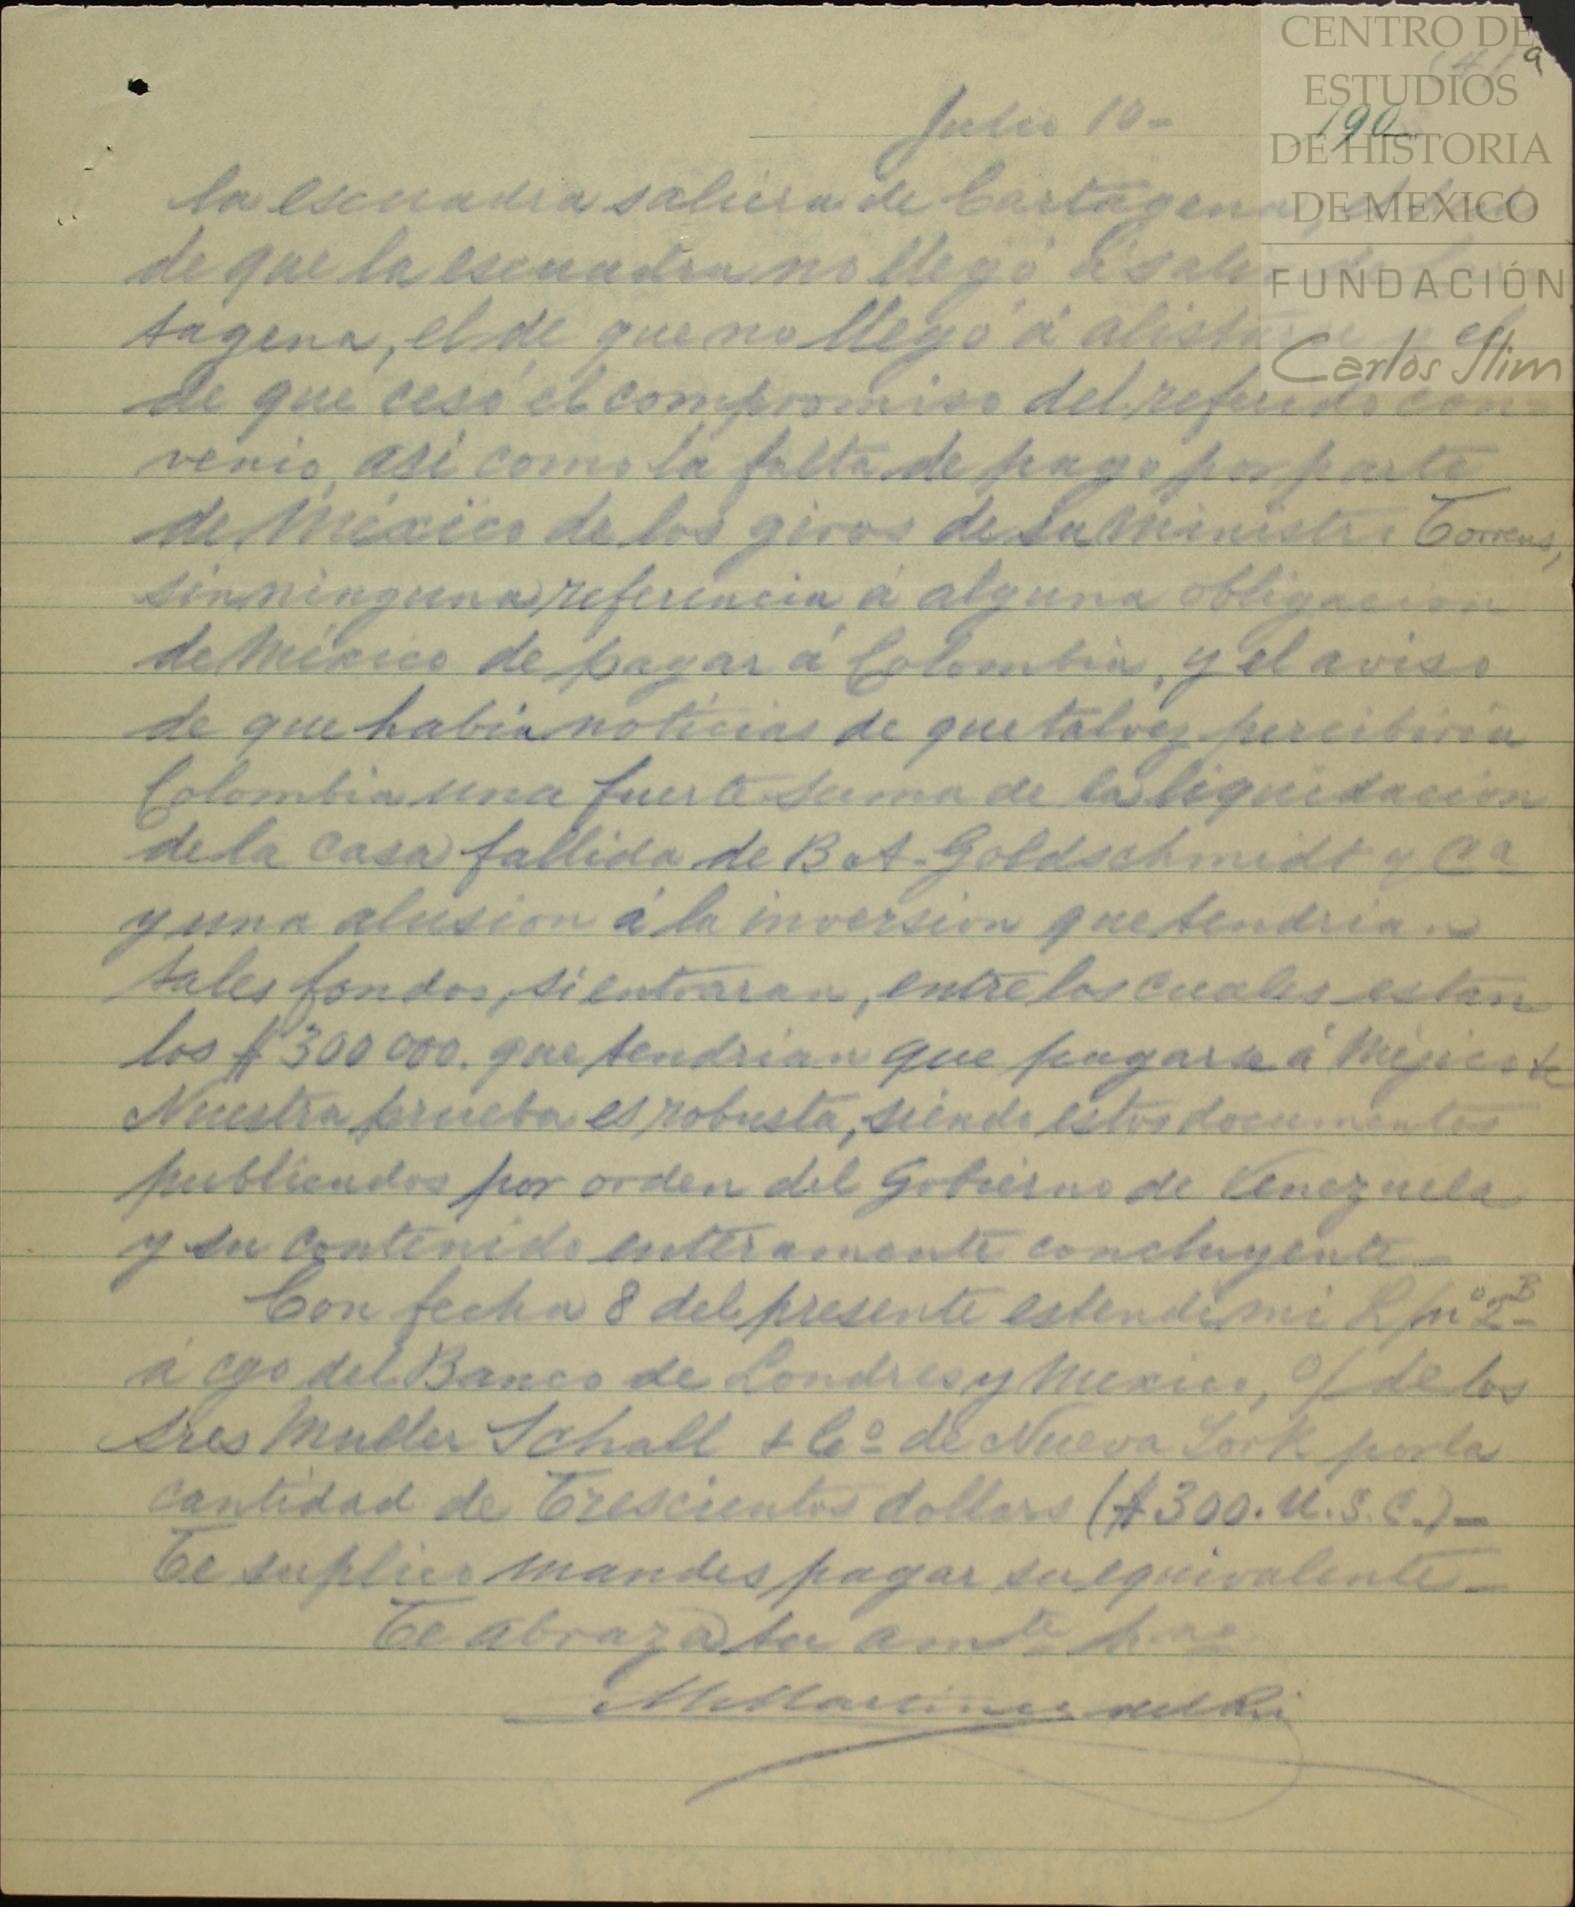 CENTRO DE
ESTUDIOS
DE HISTORIA
DE MEXICO
FUNDACIÓN
Carlos Slim
Julio 10-
190
la escuadra saliera de Cartagena,
de que la escuadra no llegó á salir de Car
tagena, el de que no llegó á alistarse y el
de que cesó el compromiso del referido con-
venio, asi como la falta de pago por parte
de México de los giros de su Ministro Torrens,
sin ninguna referencia á alguna obligacion
de México de pagar á Colombia, y el aviso
de que habia noticias de que talvez percibiria
Colombia una fuerte suma de la liquidacion
de la casa fallida de B A. Goldschmidt y Ca
y una alusion á la inversion que tendrian
tales fondos, si entraran, entre los cuales estan
los $300 000. que tendrian que pagarse á Mejico
Nuestra prueba es robusta, siendo estos documentos
publicados por orden del Gobierno de Venezuela
y su contenido enteramente concluyente-
Con fecha 8 del presente estendi mi L/ no 2B-
á cgo del Banco de Londres y Mexico, o/ de los
Sres Muller Schall & Co de Nueva York por la
cantidad de Trescientos dollars ($300. U.S.C.)-
Te suplico mandes pagar su equivalente-
Te abraza tu amte hno
M Martinez del Rio